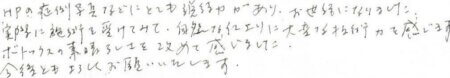 HPの症例写真などにとても説得力があり、お世話になりました。
実際に施術を受けてみて、自然な仕上りに大変な技術力を感じます
ボトックスの素晴らしさを改めて感じました。
今後ともよろしくお願いいたします。